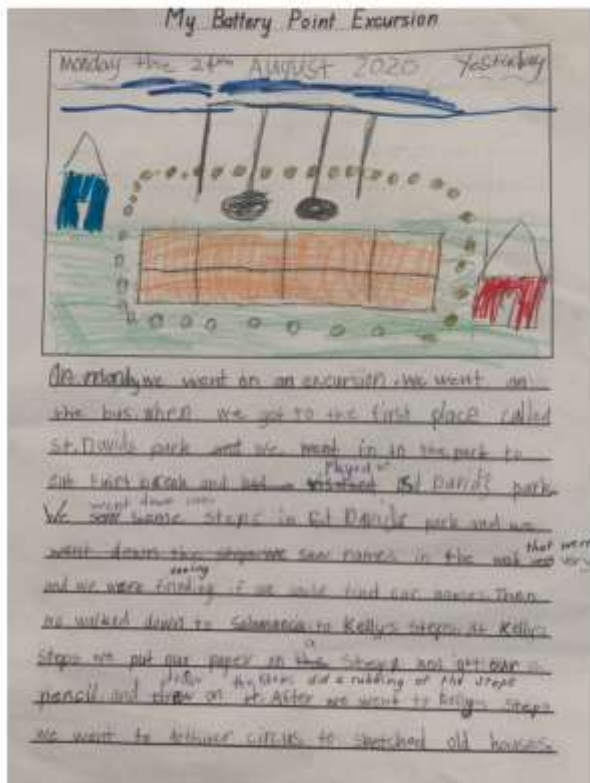 My Battery Point Excursion
Monday the 24th August 2020 Yesterday
On mondy we went on an excursion. We went on
the bus. when we got to the first place called
St. Davids park and we went in to the park to
eat first break and played at St David's park.
We went down some steps in St David's park and we
went down the we saw names in the that were
and we were seeing if we could find our names. Then
we walked down to Salamanca to Kellys steps. At Kellys
Steps we put our paper on a step and got our
pencil and did a rubbing of the steps
on it. After we went to Kellys steps
we went to circus to sketched old houses.